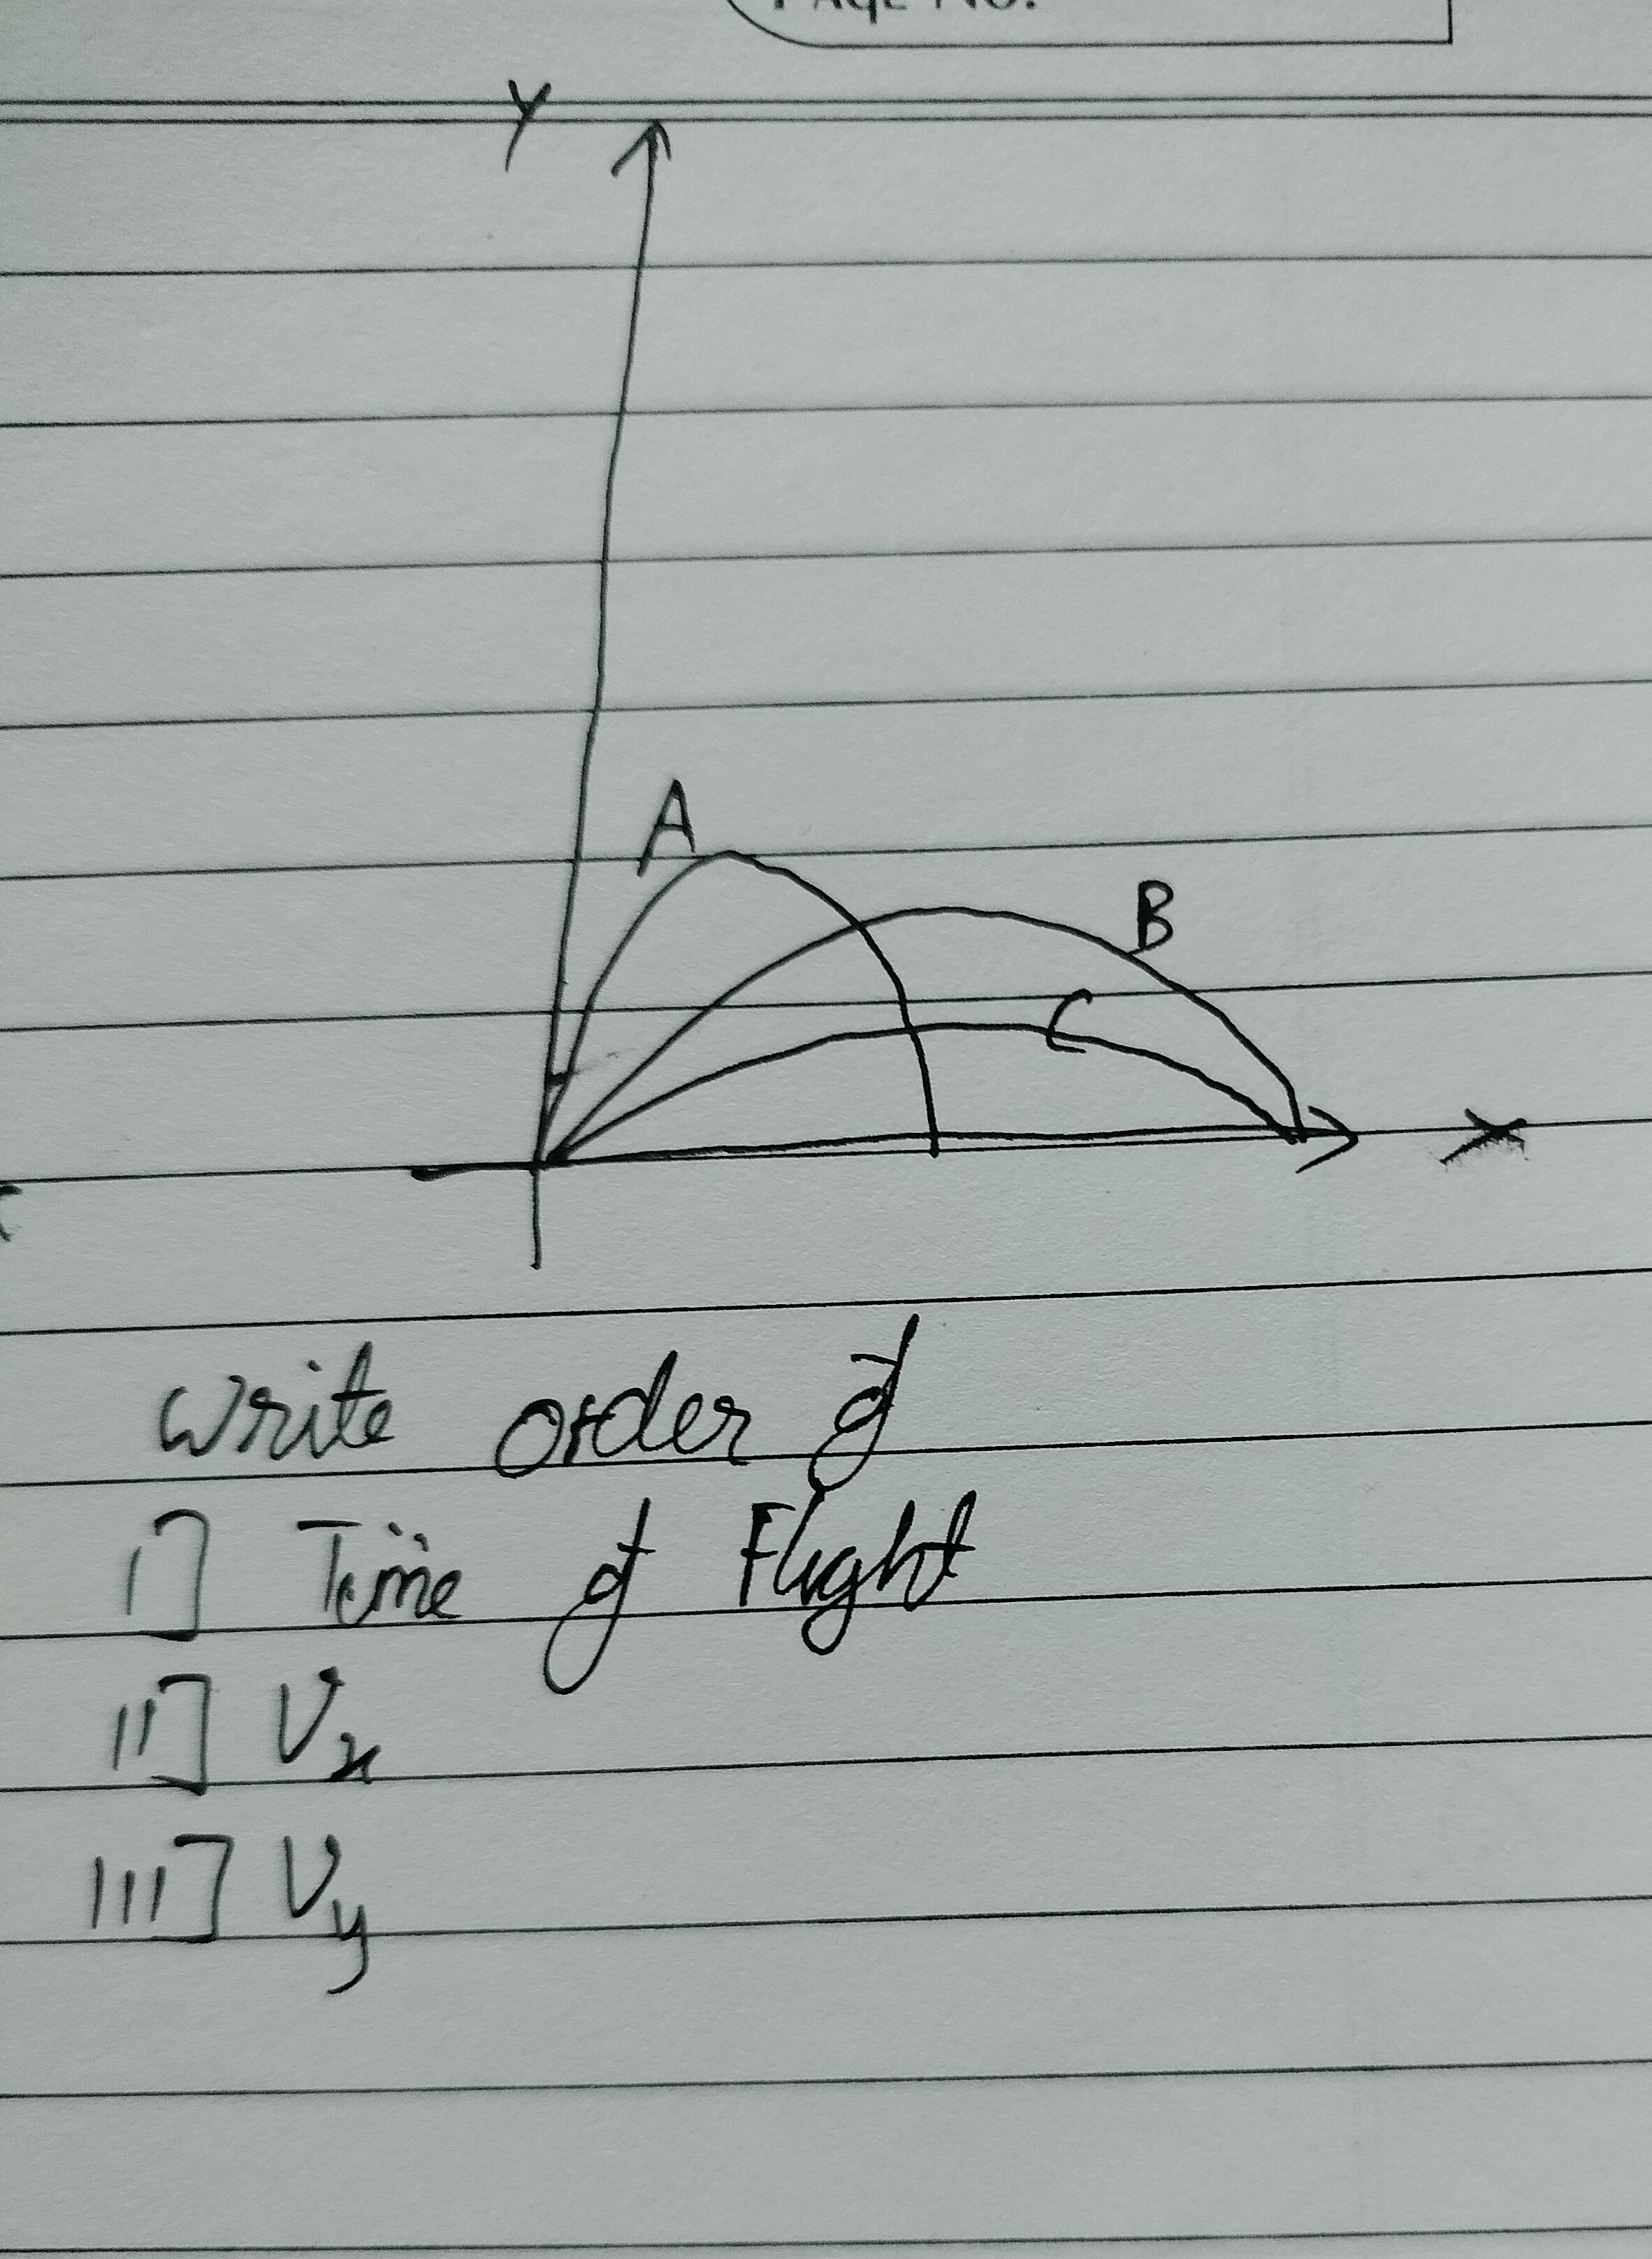 PAGE NO.
Y
A
B
C
X
write order of
I] Time of Flight
II] Vx
III] Vy